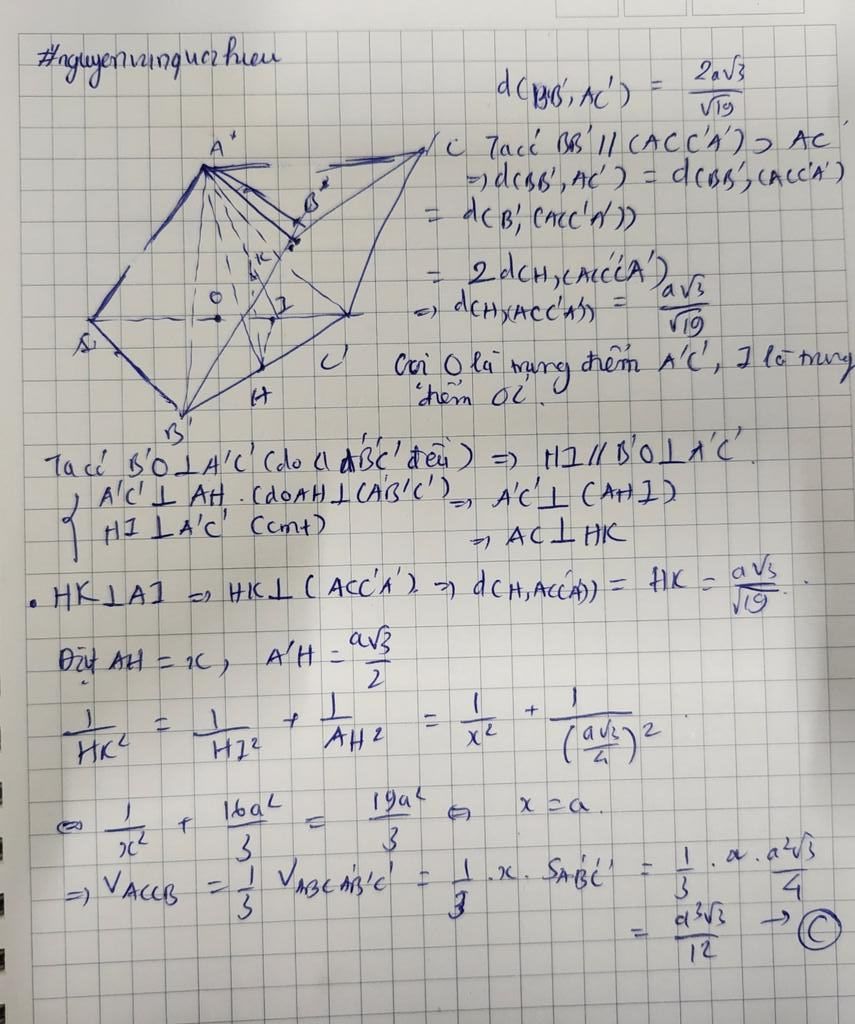 #nguyenvanquochieu
d(BB', AC') = 2a√3/√19
A'
C
B*
K
O
I
A'
H
C'
B'
Ta có BB' // (ACC'A') ⊃ AC'
=> d(BB', AC') = d(BB', (ACC'A')
= d(B', (ACC'A'))
= 2d(H, (ACC'A')
=> d(H, (ACC'A')) = a√3/√19
Gọi O là trung điểm A'C', I là trung
điểm OC'.
Ta có B'O ⊥ A'C' (do Δ A'B'C' đều) => HI // B'O ⊥ A'C'
{ A'C' ⊥ AH. (do AH ⊥ (A'B'C') => A'C' ⊥ (AHI)
HI ⊥ A'C' (cmt) => AC ⊥ HK
• HK ⊥ AI => HK ⊥ (ACC'A') => d(H, ACC'A')) = HK = a√3/√19.
Đặt AH = x, A'H = a√3/2
1/HK² = 1/HI² + 1/AH² = 1/x² + 1/(a√3/4)²
⇔ 1/x² + 16a²/3 = 19a²/3 ⇔ x = a.
=> V ACC'B = 1/3 V ABCA'B'C' = 1/3 . x . S A'B'C' = 1/3 . a . a²√3/4
= a³√3/12 → C